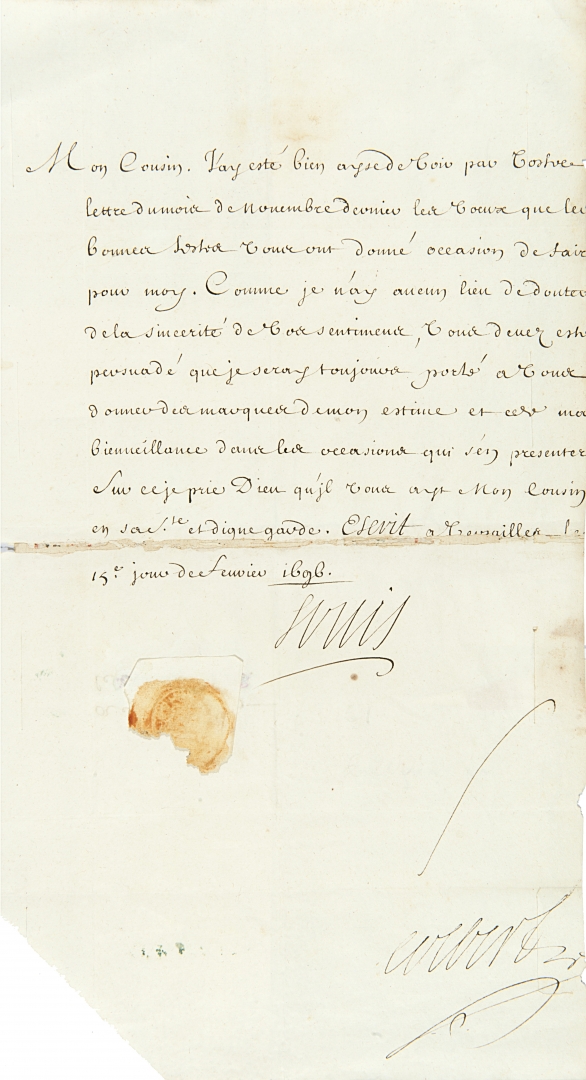 Mon Cousin. J'ay esté bien ayse de voir par vostre
lettre du mois de novembre dernier les voeux que les
bonnes festes vous ont donné occasion de fair
pour moy. Comme je n'ay aucun lieu de douter
de la sincerité de vos sentimens, vous devez estre
persuadé que je seray toujours porté a vous
donner des marques de mon estime et de ma
bienveillance dans les occasions qui s'en presenter
Sur ce je prie Dieu qu'jl vous ayt Mon Cousin
en sa s.te et digne garde. Escrit a Versailles le
15.e jour de feuvier 1696.
Louis
Colbert